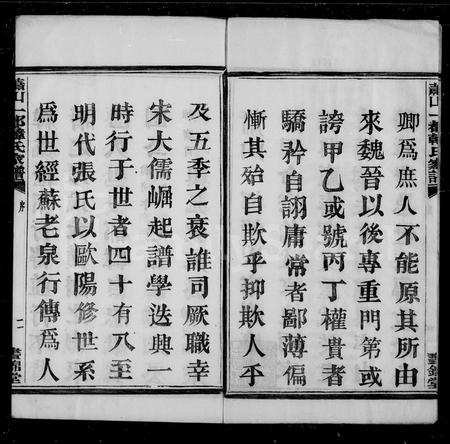 卿爲庶人不能原其所由
來魏晉以後專重門第或
誇甲乙或號丙丁權貴者
驕矜自詡庸常者鄙薄偏
慚其殆自欺乎抑欺人乎
蕭山一都韓氏家譜
晝錦堂
及五季之衰誰司厥職幸
宋大儒崛起譜學迭興一
時行于世者四十有八至
明代張氏以歐陽修世系
爲世經蘇老泉行傳爲人
蕭山一都韓氏家譜
序
二
晝錦堂